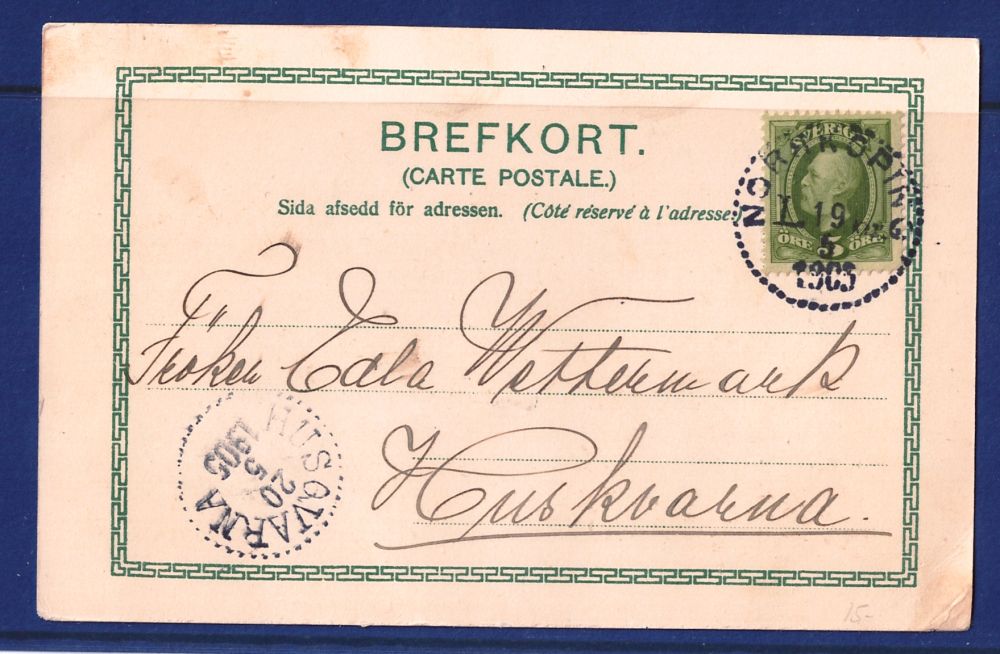 BREFKORT.
(CARTE POSTALE.)
Sida afsedd för adressen. (Côté réservé à l'adresse.)
SVERIGE
ÖRE 5 ÖRE
NORRKÖPING
19
5
1905
Fröken Edla Wettermark
Huskvarna.
HUSQVARNA
20
5
1905
15-